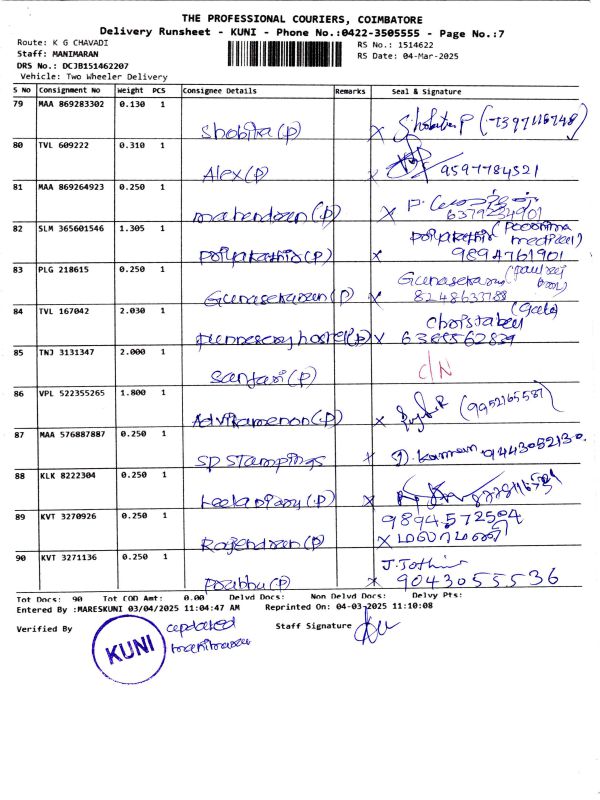 THE PROFESSIONAL COURIERS, COIMBATORE
Delivery Runsheet - KUNI - Phone No.:0422-3505555 - Page No.:7
Route: K G CHAVADI RS No.: 1514622
Staff: MANIMARAN RS Date: 04-Mar-2025
DRS No.: DCJB151462207
Vehicle: Two Wheeler Delivery
S No Consignment No Weight PCS Consignee Details Remarks Seal & Signature
79 MAA 869283302 0.130 1
Shobika (P)
80 TVL 609222 0.310 1
Alex (P) 9597784521
81 MAA 869264923 0.250 1
mahendran (P) 6379234901
82 SLM 365601546 1.305 1
9894761901
83 PLG 218615 0.250 1
Gunasekaran (P) Gunasekaran
84 TVL 167042 2.030 1
(Gate)
85 TNJ 3131347 2.000 1
C/N
86 VPL 522355265 1.800 1
Advikamenon (P) (9952165587)
87 MAA 576887887 0.250 1
SP Stampings
88 KLK 8222304 0.250 1
89 KVT 3270926 0.250 1
9894572504
Rajendran (P)
90 KVT 3271136 0.250 1
Prabhu (P) 9043055536
Tot Docs: 90 Tot COD Amt: 0.00 Delvd Docs: Non Delvd Docs: Delvy Pts:
Entered By :MARESKUNI 03/04/2025 11:04:47 AM Reprinted On: 04-03-2025 11:10:08
Verified By KUNI updated Staff Signature
manimaran